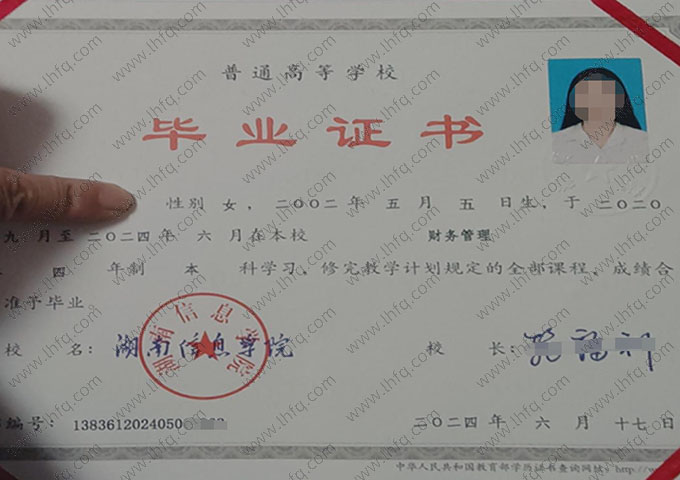 普通高等学校
毕业证书
性别 女，二〇〇二年 五 月 五 日生，于 二〇二〇
九 月至 二〇二四年 六 月在本校 财务管理
四 年制 本 科学习，修完教学计划规定的全部课程，成绩合
准予毕业
校 名：湖南信息学院
校 长：
湖南信息学院
编号：13836120240500
二〇二四年 六 月 十七日
中华人民共和国教育部学历证书查询网址：http://w
www.lhfq.com